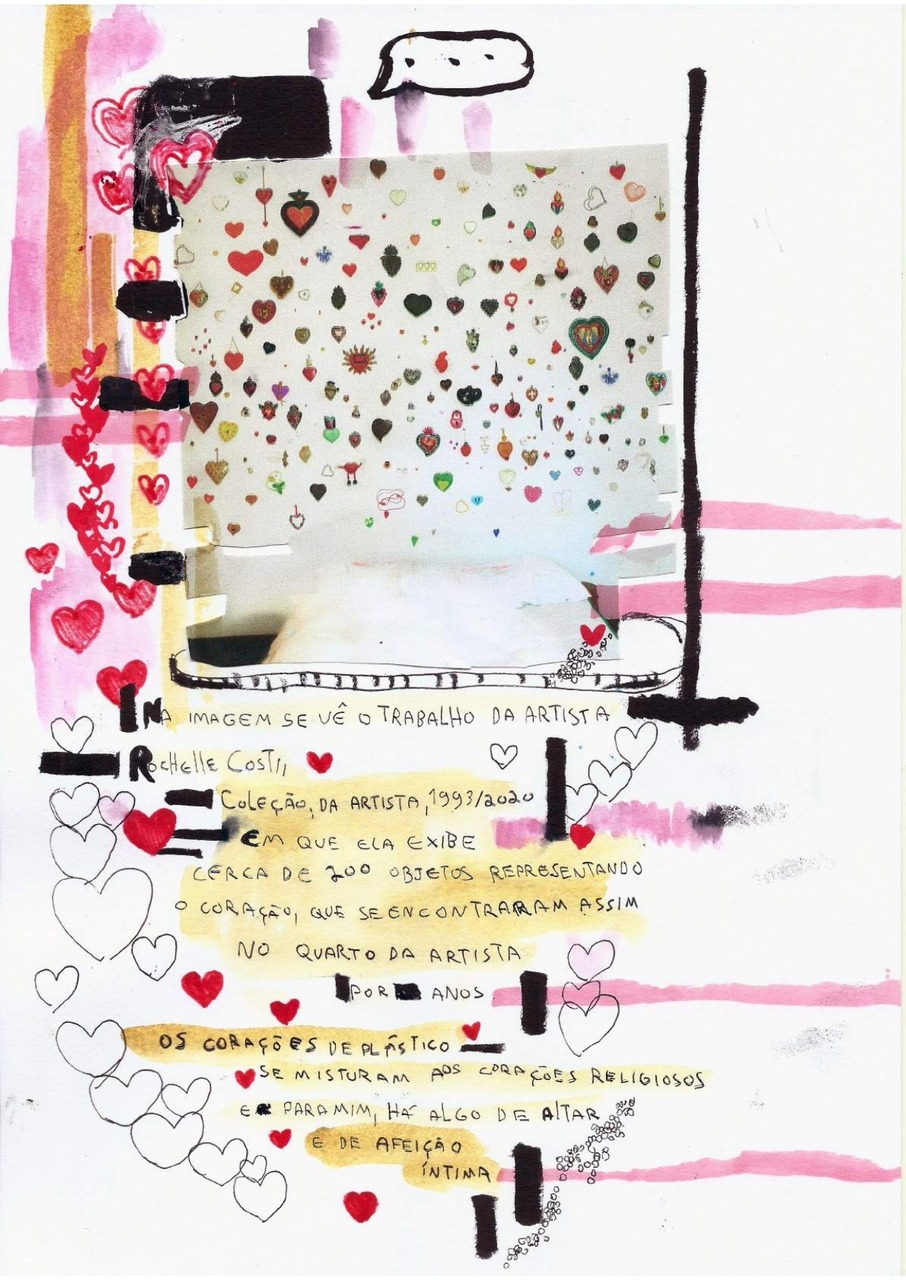 ...
NA IMAGEM SE VÊ O TRABALHO DA ARTISTA
ROCHELLE COSTI,
COLEÇÃO, DA ARTISTA, 1993/2020
EM QUE ELA EXIBE
CERCA DE 200 OBJETOS REPRESENTANDO
O CORAÇÃO, QUE SE ENCONTRARAM ASSIM
NO QUARTO DA ARTISTA
POR ANOS
OS CORAÇÕES DE PLÁSTICO
SE MISTURAM AOS CORAÇÕES RELIGIOSOS
E PARA MIM, HÁ ALGO DE ALTAR
E DE AFEIÇÃO
ÍNTIMA